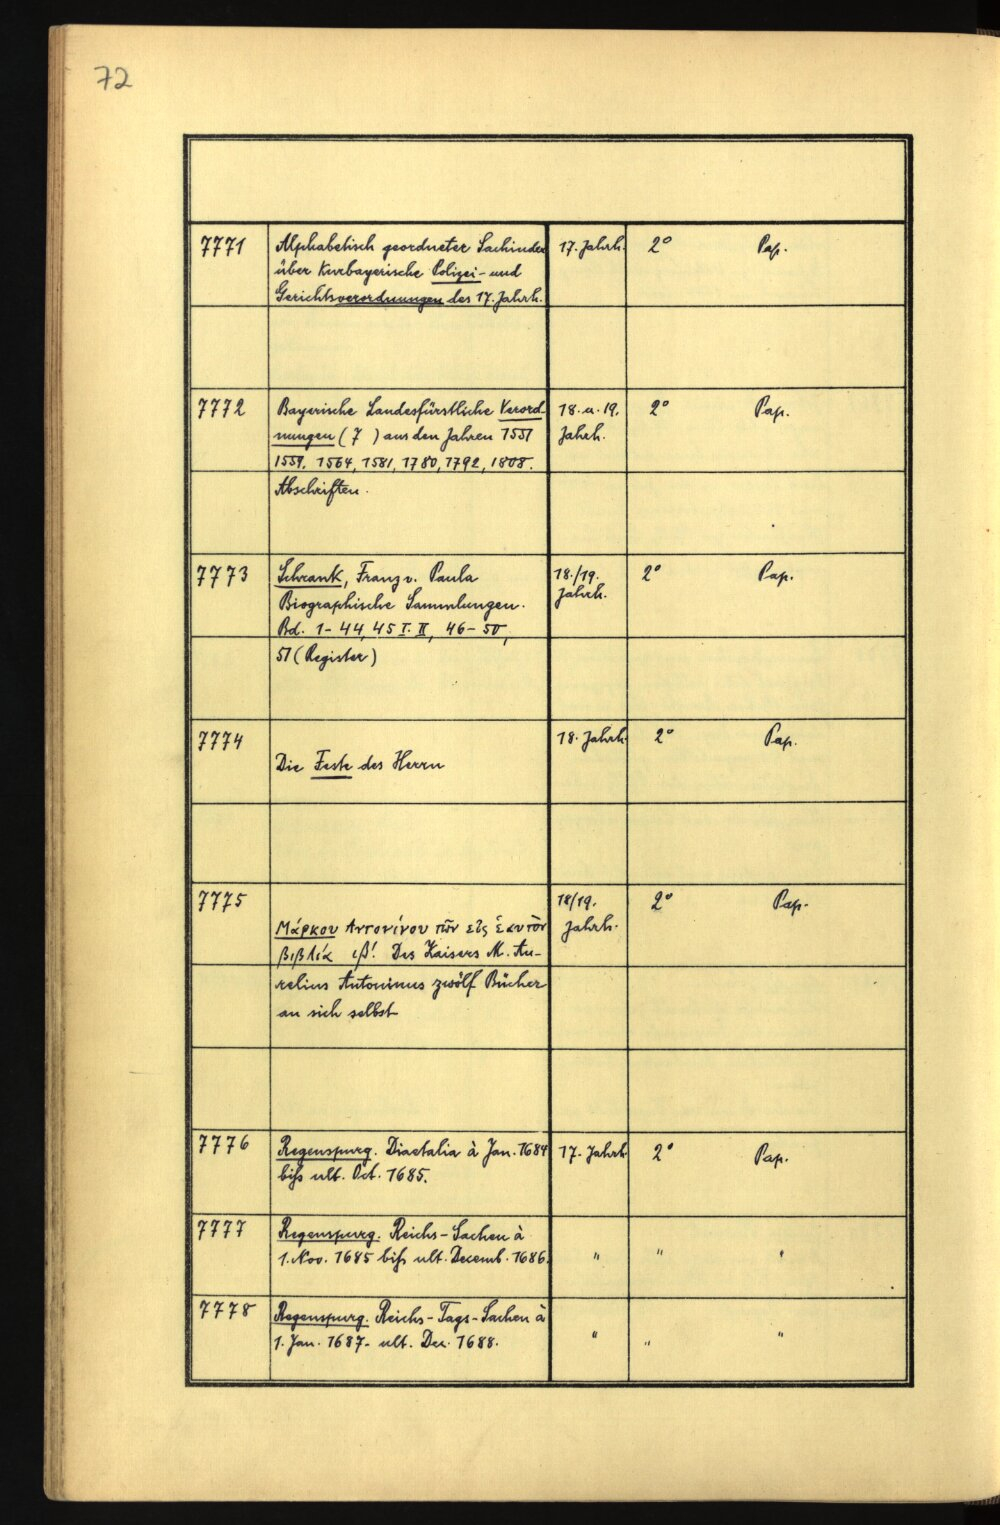 72
7771 Alphabetisch geordneter Sachindex 17. Jahrh. 2° Pap.
über Kurbayerische Polizei- und
Gerichtsverordnungen des 17. Jahrh.
7772 Bayerische Landesfürstliche Verord- 18. u. 19. 2° Pap.
nungen (7 ) aus den Jahren 1551 Jahrh.
1559, 1564, 1581, 1780, 1792, 1808.
Abschriften.
7773 Schrank, Franz v. Paula 18./19. 2° Pap.
Biographische Sammlungen. Jahrh.
Bd. 1-44, 45 I. II, 46-50,
51 (Register)
7774 18. Jahrh. 2° Pap.
Die Feste des Herrn
7775 18/19. 2° Pap.
Μάρκου Αντονίνου τῶν εἰς ἑαυτὸν Jahrh.
βιβλία ιβ! Des Kaisers M. Au-
relius Antoninus zwölf Bücher
an sich selbst
7776 Regenspurg. Diaetalia à Jan. 1684 17. Jahrh. 2° Pap.
biß ult. Oct. 1685.
7777 Regenspurg. Reichs-Sachen à
1. Nov. 1685 biß ult. Decemb. 1686. " " "
7778 Regenspurg. Reichs-Tags-Sachen à
1. Jan. 1687- ult. Dec. 1688. " " "